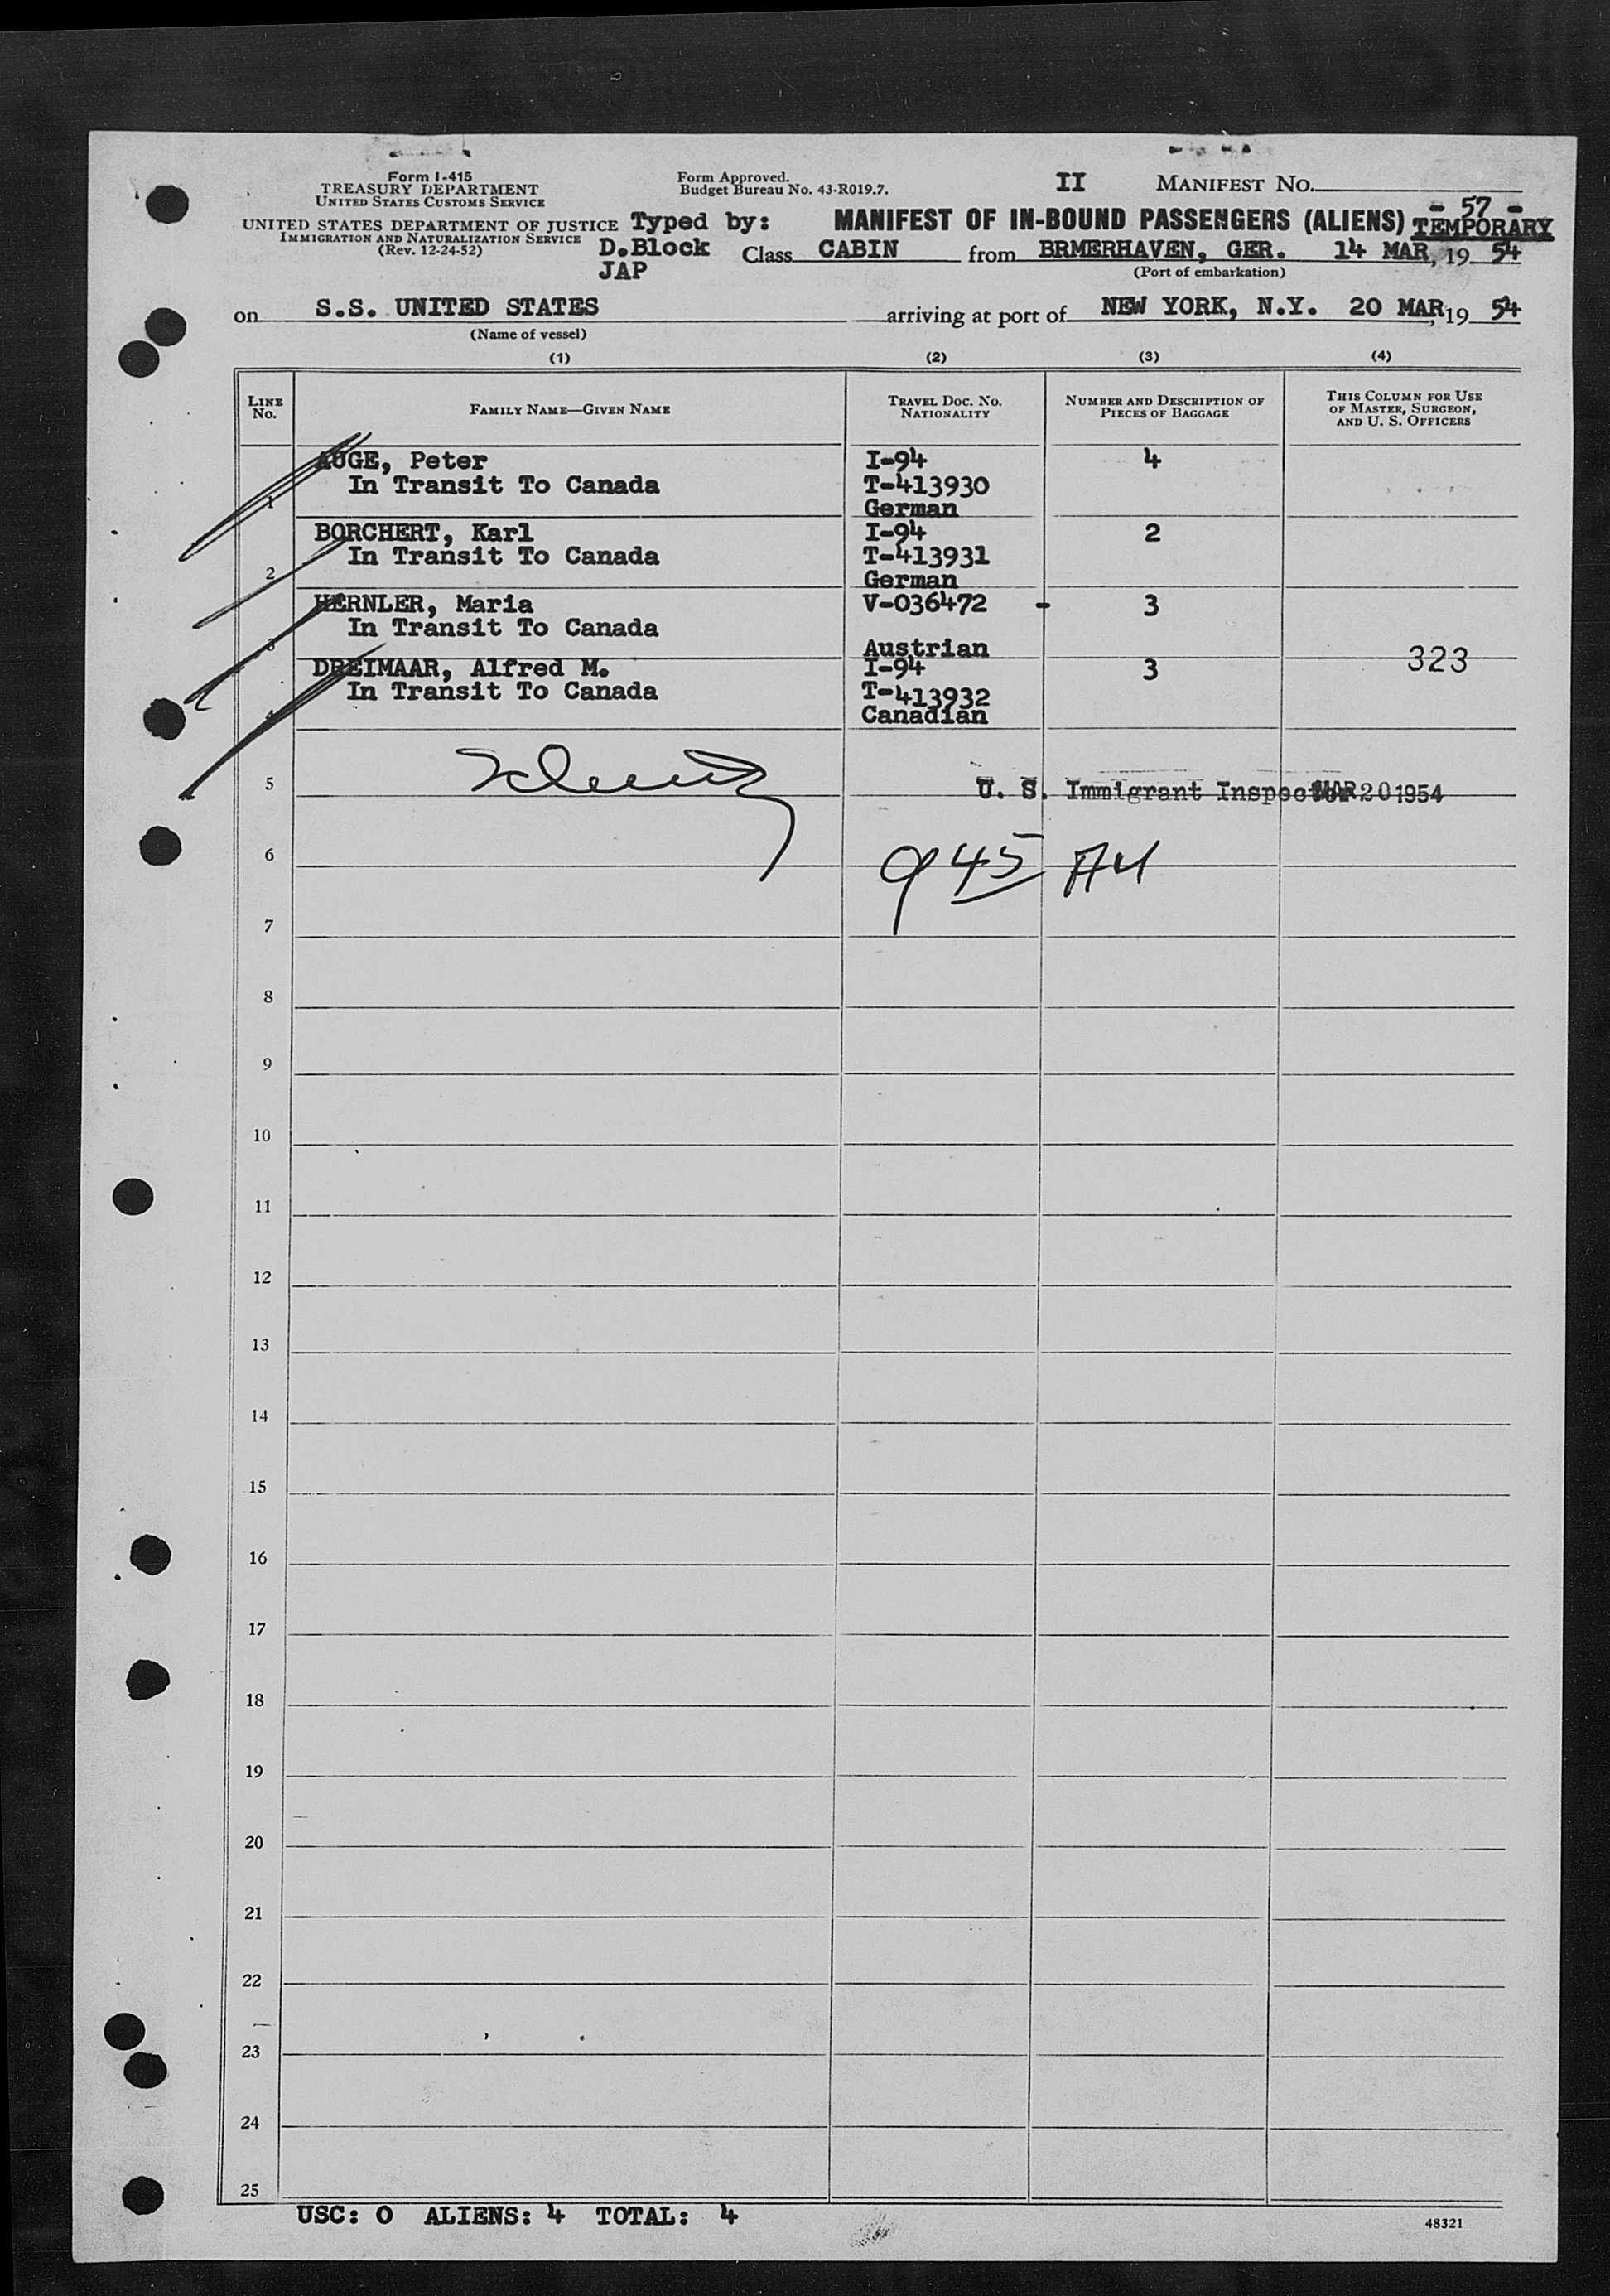 Form I-415
TREASURY DEPARTMENT
UNITED STATES CUSTOMS SERVICE
UNITED STATES DEPARTMENT OF JUSTICE
IMMIGRATION AND NATURALIZATION SERVICE
(Rev. 12-24-52)
Form Approved.
Budget Bureau No. 43-R019.7.
Typed by:
D.Block
JAP
II MANIFEST No.
- 57 -
MANIFEST OF IN-BOUND PASSENGERS (ALIENS) TEMPORARY
Class CABIN from BRMERHAVEN, GER. 14 MAR, 19 54
(Port of embarkation)
on S.S. UNITED STATES arriving at port of NEW YORK, N.Y. 20 MAR, 19 54
(Name of vessel)
(1) (2) (3) (4)
LINE No. FAMILY NAME—GIVEN NAME TRAVEL DOC. NO. NATIONALITY NUMBER AND DESCRIPTION OF PIECES OF BAGGAGE THIS COLUMN FOR USE OF MASTER, SURGEON, AND U. S. OFFICERS
AUGE, Peter I-94 4
In Transit To Canada T-413930
1 German
BORCHERT, Karl I-94 2
In Transit To Canada T-413931
2 German
HERNLER, Maria V-036472 - 3
In Transit To Canada
3 Austrian
323
DREIMAAR, Alfred M. I-94 3
In Transit To Canada T-413932
4 Canadian
5 U. S. Immigrant Inspector MAR 20 1954
6 945 AM
7
8
9
10
11
12
13
14
15
16
17
18
19
20
21
22
23
24
25
USC: 0 ALIENS: 4 TOTAL: 4
48321